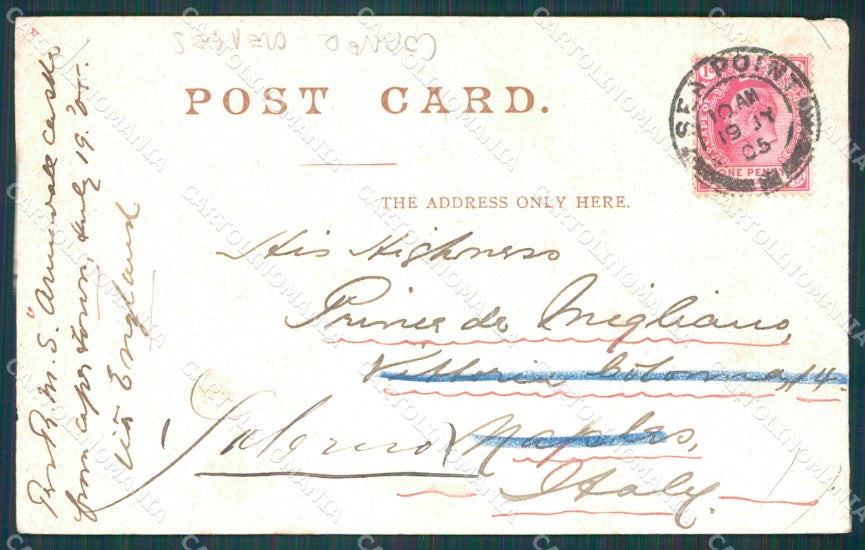 CORNER CREASES
POST CARD.
THE ADDRESS ONLY HERE.
SEA POINT
10 AM
19 JY
05
ONE PENNY
His Highness
Prince de Migliano,
Vittoria Colonna, 14.
Naples,
Salerno
Italy.
Per R. M. S. Armadale Castle
from Cape Town, July 19. '05.
Via England
CARTOLINOMANIA